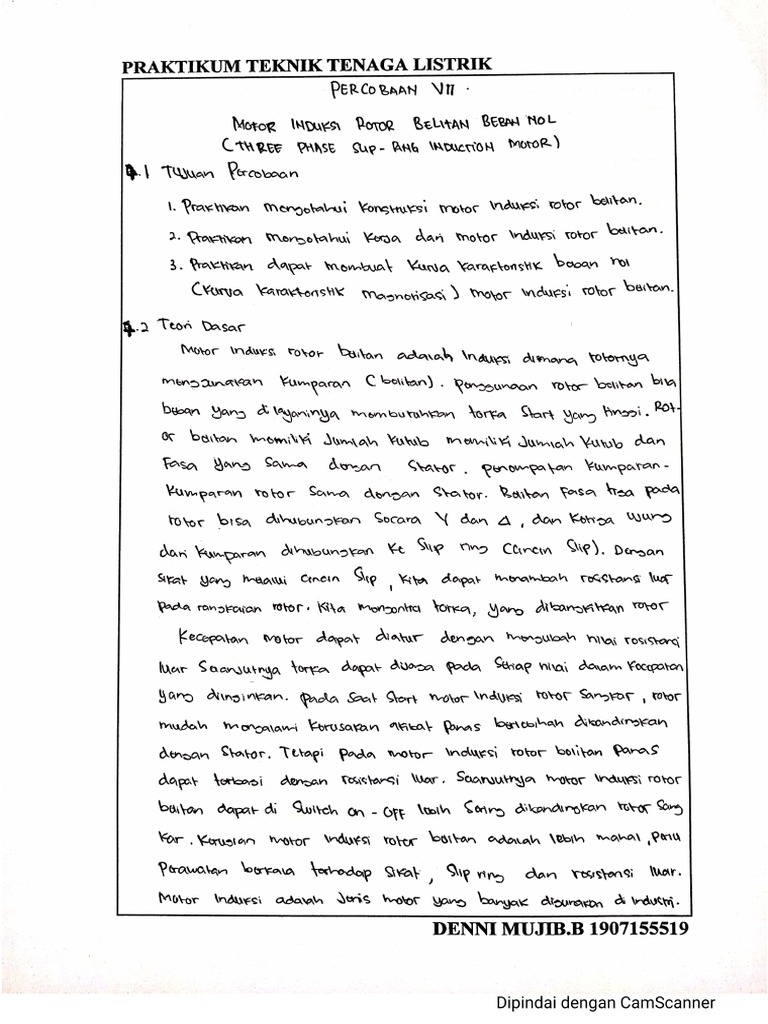 PRAKTIKUM TEKNIK TENAGA LISTRIK
PERCOBAAN VII.
MOTOR INDUKSI ROTOR BELITAN BEBAN NOL
(THREE PHASE SLIP-RING INDUCTION MOTOR)
7.1 Tujuan Percobaan
1. Praktikan mengetahui konstruksi motor induksi rotor belitan.
2. Praktikan mengetahui kerja dari motor induksi rotor belitan.
3. Praktikan dapat membuat kurva karakteristik beban nol
(kurva karakteristik magnetisasi) motor induksi rotor belitan.
7.2 Teori Dasar
Motor induksi rotor belitan adalah induksi dimana rotornya
menggunakan kumparan (belitan). Penggunaan rotor belitan bila
beban yang dilayaninya membutuhkan torka start yang tinggi. Rot-
or belitan memiliki jumlah kutub memiliki jumlah kutub dan
fasa yang sama dengan stator. Penempatan kumparan-
kumparan rotor sama dengan stator. Belitan fasa tiga pada
rotor bisa dihubungkan secara Y dan Δ, dan ketiga ujung
dari kumparan dihubungkan ke slip ring (cincin slip). Dengan
sikat yang melalui cincin slip, kita dapat menambah resistansi luar
pada rangkaian rotor. Kita mengontrol torka, yang dibangkitkan rotor
Kecepatan motor dapat diatur dengan mengubah nilai resistansi
luar selanjutnya torka dapat dijaga pada setiap nilai dalam kecepatan
yang diinginkan. Pada saat start motor induksi rotor sangkar, rotor
mudah mengalami kerusakan akibat panas berlebihan dibandingkan
dengan stator. Tetapi pada motor induksi rotor belitan panas
dapat terbagi dengan resistansi luar. Selanjutnya motor induksi rotor
belitan dapat di switch on-off lebih sering dibandingkan rotor sang
kar. Kerugian motor induksi rotor belitan adalah lebih mahal, perlu
perawatan berkala terhadap sikat, slip ring dan resistansi luar.
Motor induksi adalah jenis motor yang banyak digunakan di industri.
DENNI MUJIB.B 1907155519
Dipindai dengan CamScanner